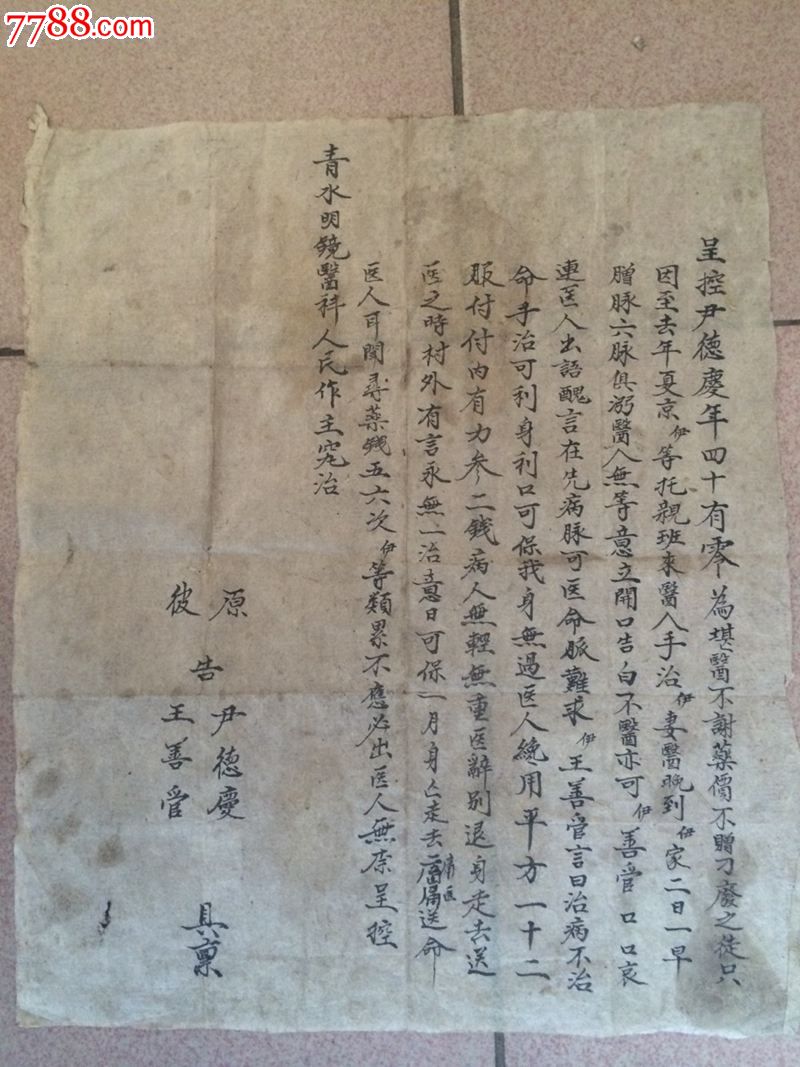 7788.com
呈控尹德慶年四十有零為堪醫不謝藥價不贈刁廢之徒只
因至去年夏京伊等托親班來醫入手治伊妻醫晚到伊家二日一早
膳脉六脉俱弱醫人無等意立開口告白不醫亦可伊善管口口哀
連医人出語醜言在先病脉可医命脈難求伊王善管言曰治病不治
命手治可利身利口可保我身無過医人終用平方一十二
服付付內有力参二錢病人無輕無重医辭別退身走去送
医之時村外有言永無一治意日可保一月身亡走去
席医
送命
医人耳聞尋藥錢五六次伊等類累不應必出医人無奈呈控
青水明鏡醫科人民作主究治
原
彼
告
尹德慶
王善管
具禀